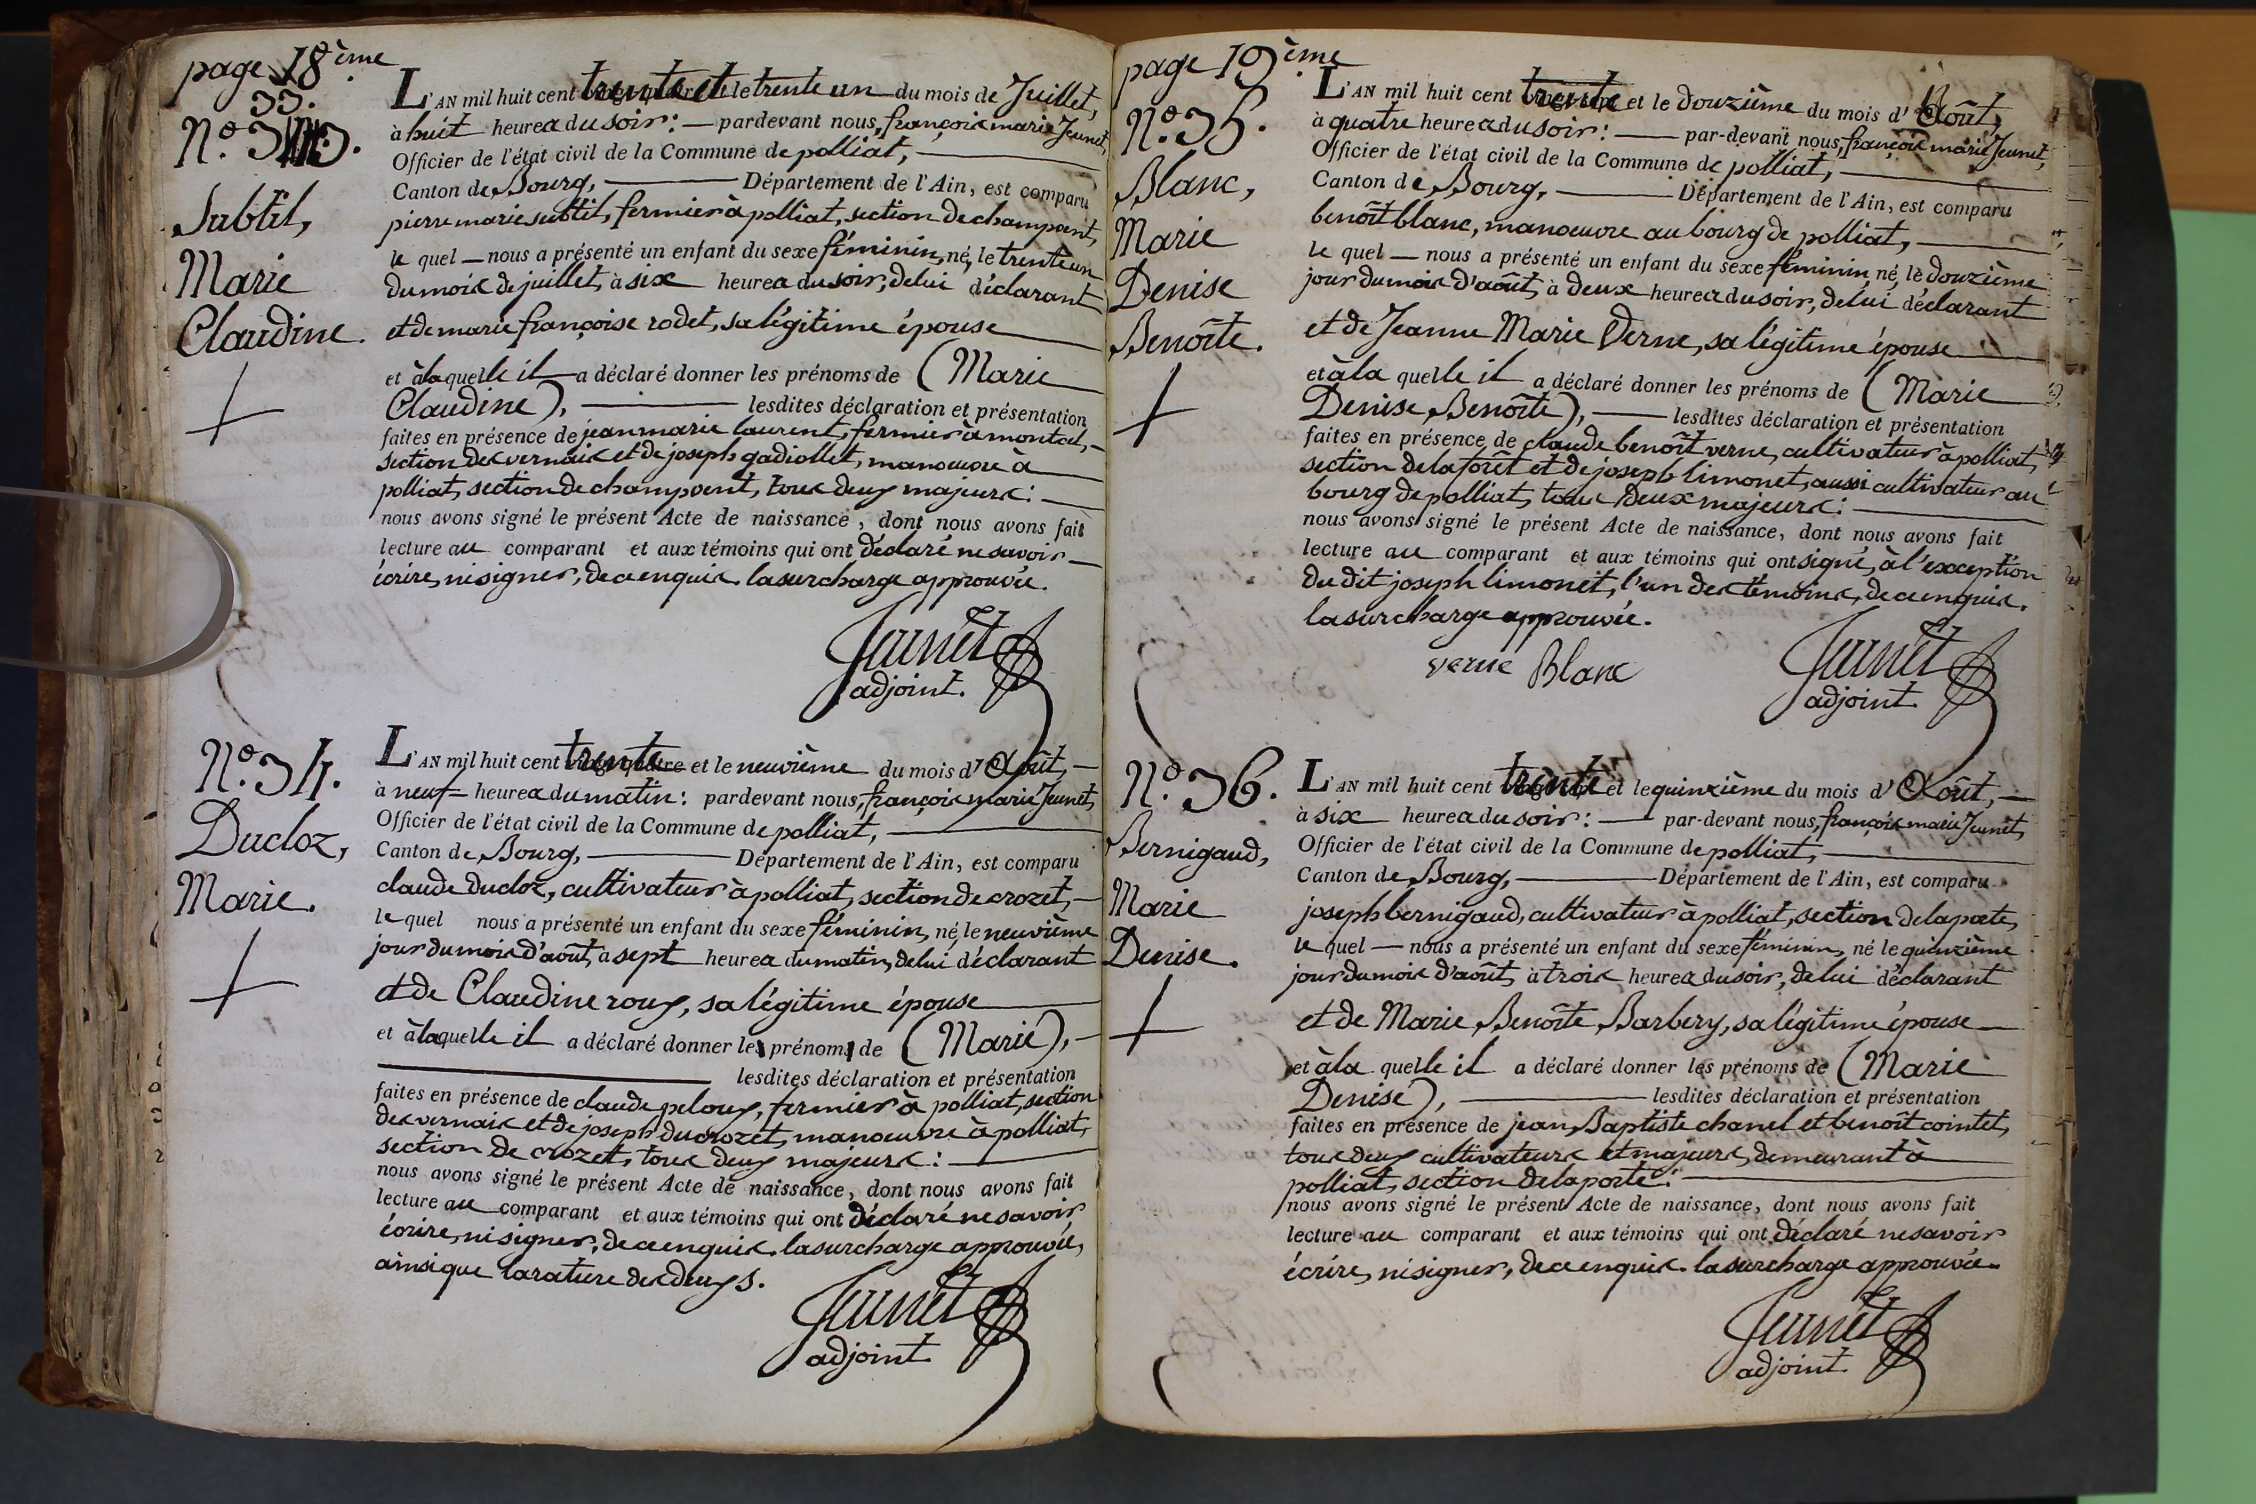 page 18ème
33.
N.° 33.
Subtil,
Marie
Claudine.
L'AN mil huit cent trente et le trente un du mois de Juillet,
à huit heures du soir : — pardevant nous, françois marie Jeunet,
Officier de l'état civil de la Commune de polliat,
Canton de Bourg, — Département de l'Ain, est comparu
pierre marie subtil, fermier à polliat, section de champvent,
le quel — nous a présenté un enfant du sexe féminin, né, le trente un
du mois de juillet, à six heures du soir, de lui déclarant
et de marie françoise rodet, sa légitime épouse
et à la quelle il — a déclaré donner les prénoms de (Marie
Claudine), — lesdites déclaration et présentation
faites en présence de jean marie laurent, fermier à
section des vernais et de joseph gadiollet, manoeuvre à
polliat, section de champvent, tous deux majeurs : —
nous avons signé le présent Acte de naissance, dont nous avons fait
lecture au comparant et aux témoins qui ont déclaré ne savoir
écrire, ni signer, de ce enquis. la surcharge approuvée.
Jeunet
adjoint.
N.° 34.
Ducloz,
Marie.
L'AN mil huit cent trente et le neuvième du mois d'Août, —
à neuf — heures du matin : pardevant nous, françois marie Jeunet,
Officier de l'état civil de la Commune de polliat, —
Canton de Bourg, — Département de l'Ain, est comparu
claude Ducloz, cultivateur à polliat, section de crozet, —
le quel nous a présenté un enfant du sexe féminin, né, le neuvième
jour du mois d'août, à sept heures du matin, de lui déclarant
et de Claudine roux, sa légitime épouse
et à la quelle il a déclaré donner les prénoms de (Marie), —
lesdites déclaration et présentation
faites en présence de claude peloux, fermier à polliat, section
des vernais et de joseph ducrozet, manoeuvre à polliat,
section de crozet, tous deux majeurs : —
nous avons signé le présent Acte de naissance, dont nous avons fait
lecture au comparant et aux témoins qui ont déclaré ne savoir
écrire, ni signer, de ce enquis. la surcharge approuvée,
ainsi que la rature des deux s.
Jeunet
adjoint
page 19ème
N.° 35.
Blanc,
Marie
Denise
Benoîte.
L'AN mil huit cent trente et le douzième du mois d'Août,
à quatre heures du soir : — par-devant nous, françois marie Jeunet,
Officier de l'état civil de la Commune de polliat, —
Canton de Bourg, — Département de l'Ain, est comparu
benoît blanc, manoeuvre au bourg de polliat, —
le quel — nous a présenté un enfant du sexe féminin, né, le douzième
jour du mois d'août, à deux heures du soir, de lui déclarant
et de Jeanne Marie Verne, sa légitime épouse
et à la quelle il a déclaré donner les prénoms de (Marie
Denise Benoîte), — lesdites déclaration et présentation
faites en présence de claude benoît verne, cultivateur à polliat,
section de la forêt et de joseph limonet, aussi cultivateur au
bourg de polliat, tous deux majeurs : —
nous avons signé le présent Acte de naissance, dont nous avons fait
lecture au comparant et aux témoins qui ont signé, à l'exception
du dit joseph limonet, l'un des témoins, de ce enquis.
la surcharge approuvée.
verne Blanc
Jeunet
adjoint
N.° 36.
Bernigaud,
Marie
Denise.
L'AN mil huit cent trente et le quinzième du mois d'Août, —
à six heures du soir : — par-devant nous, françois marie Jeunet,
Officier de l'état civil de la Commune de polliat, —
Canton de Bourg, — Département de l'Ain, est comparu
joseph bernigaud, cultivateur à polliat, section de laporte,
le quel — nous a présenté un enfant du sexe féminin, né le quinzième
jour du mois d'août, à trois heures du soir, de lui déclarant
et de Marie Benoîte Barbery, sa légitime épouse —
et à la quelle il a déclaré donner les prénoms de (Marie
Denise), — lesdites déclaration et présentation
faites en présence de jean Baptiste chanel et benoît cointet,
tous deux cultivateurs et majeurs, demeurant à
polliat, section de laporte : —
nous avons signé le présent Acte de naissance, dont nous avons fait
lecture au comparant et aux témoins qui ont déclaré ne savoir
écrire, ni signer, de ce enquis. la surcharge approuvée.
Jeunet
adjoint.